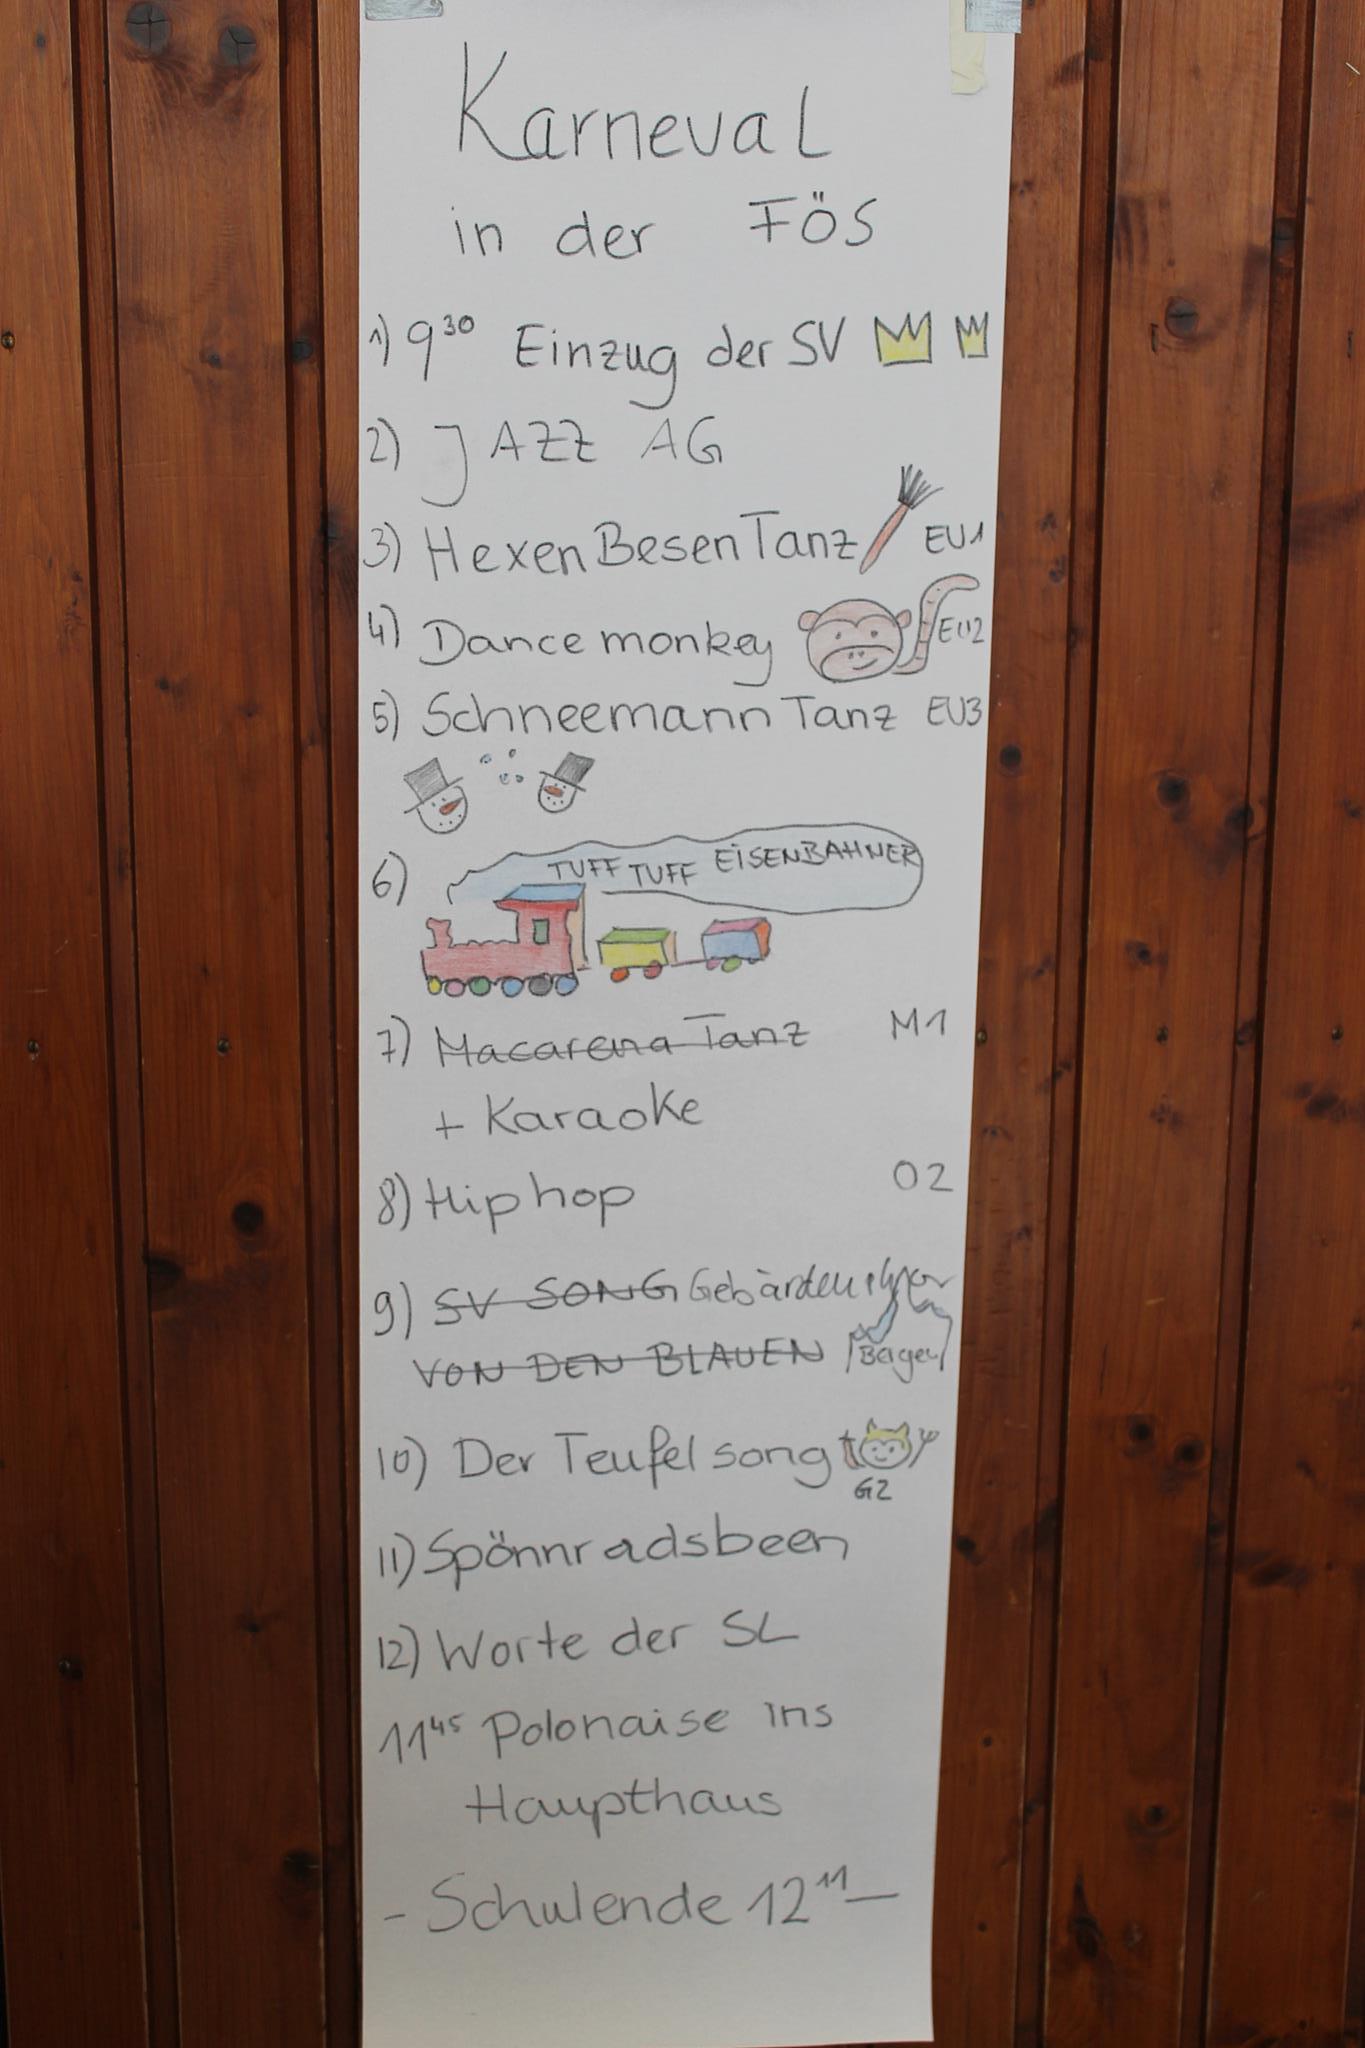 Karneval
in der FÖS
1) 9³⁰ Einzug der SV
2) JAZZ AG
3) HexenBesenTanz EU1
4) Dance monkey EU2
5) Schneemann Tanz EU3
6) TUFF TUFF EISENBAHNER
7) Macarena Tanz M1
+ Karaoke
8) Hip hop O2
9) SV SONG Gebärdenchor
VON DEN BLAUEN Bergen
10) Der Teufel song
G2
11) Spönnradsbeen
12) Worte der SL
11⁴⁵ Polonaise ins
Haupthaus
- Schulende 12¹¹ -